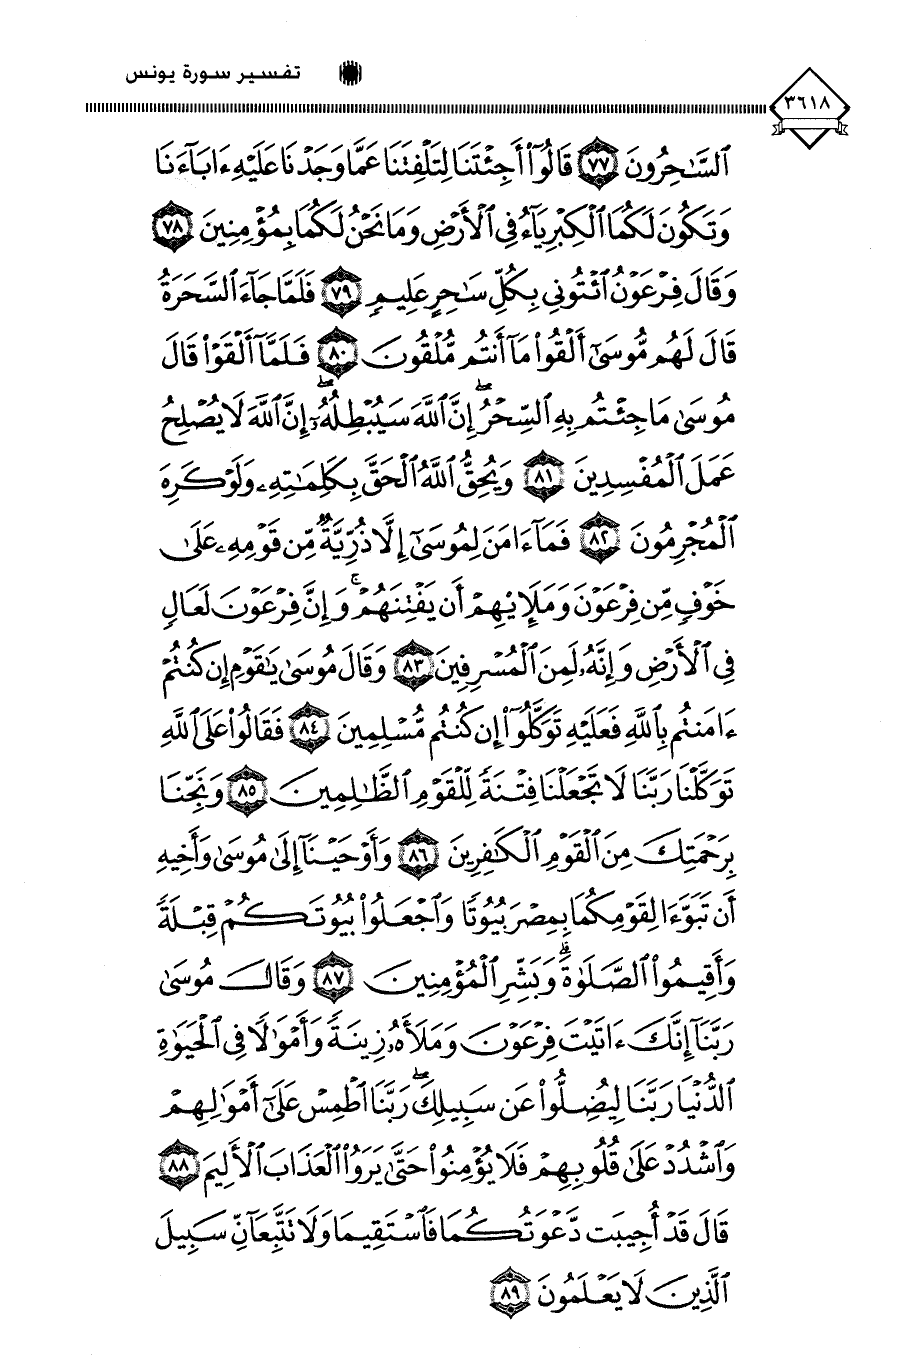 ٣٦١٨ تفسير سورة يونس
ٱلسَّٰحِرُونَ ٧٧ قَالُوٓا۟ أَجِئْتَنَا لِتَلْفِتَنَا عَمَّا وَجَدْنَا عَلَيْهِ ءَابَآءَنَا
وَتَكُونَ لَكُمَا ٱلْكِبْرِيَآءُ فِى ٱلْأَرْضِ وَمَا نَحْنُ لَكُمَا بِمُؤْمِنِينَ ٧٨
وَقَالَ فِرْعَوْنُ ٱئْتُونِى بِكُلِّ سَٰحِرٍ عَلِيمٍ ٧٩ فَلَمَّا جَآءَ ٱلسَّحَرَةُ
قَالَ لَهُم مُّوسَىٰٓ أَلْقُوا۟ مَآ أَنتُم مُّلْقُونَ ٨٠ فَلَمَّآ أَلْقَوْا۟ قَالَ
مُوسَىٰ مَا جِئْتُم بِهِ ٱلسِّحْرُ ۖ إِنَّ ٱللَّهَ سَيُبْطِلُهُۥٓ ۖ إِنَّ ٱللَّهَ لَا يُصْلِحُ
عَمَلَ ٱلْمُفْسِدِينَ ٨١ وَيُحِقُّ ٱللَّهُ ٱلْحَقَّ بِكَلِمَٰتِهِۦ وَلَوْ كَرِهَ
ٱلْمُجْرِمُونَ ٨٢ فَمَآ ءَامَنَ لِمُوسَىٰٓ إِلَّا ذُرِّيَّةٌ مِّن قَوْمِهِۦ عَلَىٰ
خَوْفٍ مِّن فِرْعَوْنَ وَمَلَإِي۟هِمْ أَن يَفْتِنَهُمْ ۚ وَإِنَّ فِرْعَوْنَ لَعَالٍ
فِى ٱلْأَرْضِ وَإِنَّهُۥ لَمِنَ ٱلْمُسْرِفِينَ ٨٣ وَقَالَ مُوسَىٰ يَٰقَوْمِ إِن كُنتُمْ
ءَامَنتُم بِٱللَّهِ فَعَلَيْهِ تَوَكَّلُوٓا۟ إِن كُنتُم مُّسْلِمِينَ ٨٤ فَقَالُوا۟ عَلَى ٱللَّهِ
تَوَكَّلْنَا رَبَّنَا لَا تَجْعَلْنَا فِتْنَةً لِّلْقَوْمِ ٱلظَّٰلِمِينَ ٨٥ وَنَجِّنَا
بِرَحْمَتِكَ مِنَ ٱلْقَوْمِ ٱلْكَٰفِرِينَ ٨٦ وَأَوْحَيْنَآ إِلَىٰ مُوسَىٰ وَأَخِيهِ
أَن تَبَوَّءَا لِقَوْمِكُمَا بِمِصْرَ بُيُوتًا وَٱجْعَلُوا۟ بُيُوتَكُمْ قِبْلَةً
وَأَقِيمُوا۟ ٱلصَّلَوٰةَ ۗ وَبَشِّرِ ٱلْمُؤْمِنِينَ ٨٧ وَقَالَ مُوسَىٰ
رَبَّنَآ إِنَّكَ ءَاتَيْتَ فِرْعَوْنَ وَمَلَأَهُۥ زِينَةً وَأَمْوَٰلًا فِى ٱلْحَيَوٰةِ
ٱلدُّنْيَا رَبَّنَا لِيُضِلُّوا۟ عَن سَبِيلِكَ ۖ رَبَّنَا ٱطْمِسْ عَلَىٰٓ أَمْوَٰلِهِمْ
وَٱشْدُدْ عَلَىٰ قُلُوبِهِمْ فَلَا يُؤْمِنُوا۟ حَتَّىٰ يَرَوُا۟ ٱلْعَذَابَ ٱلْأَلِيمَ ٨٨
قَالَ قَدْ أُجِيبَت دَّعْوَتُكُمَا فَٱسْتَقِيمَا وَلَا تَتَّبِعَآنِّ سَبِيلَ
ٱلَّذِينَ لَا يَعْلَمُونَ ٨٩